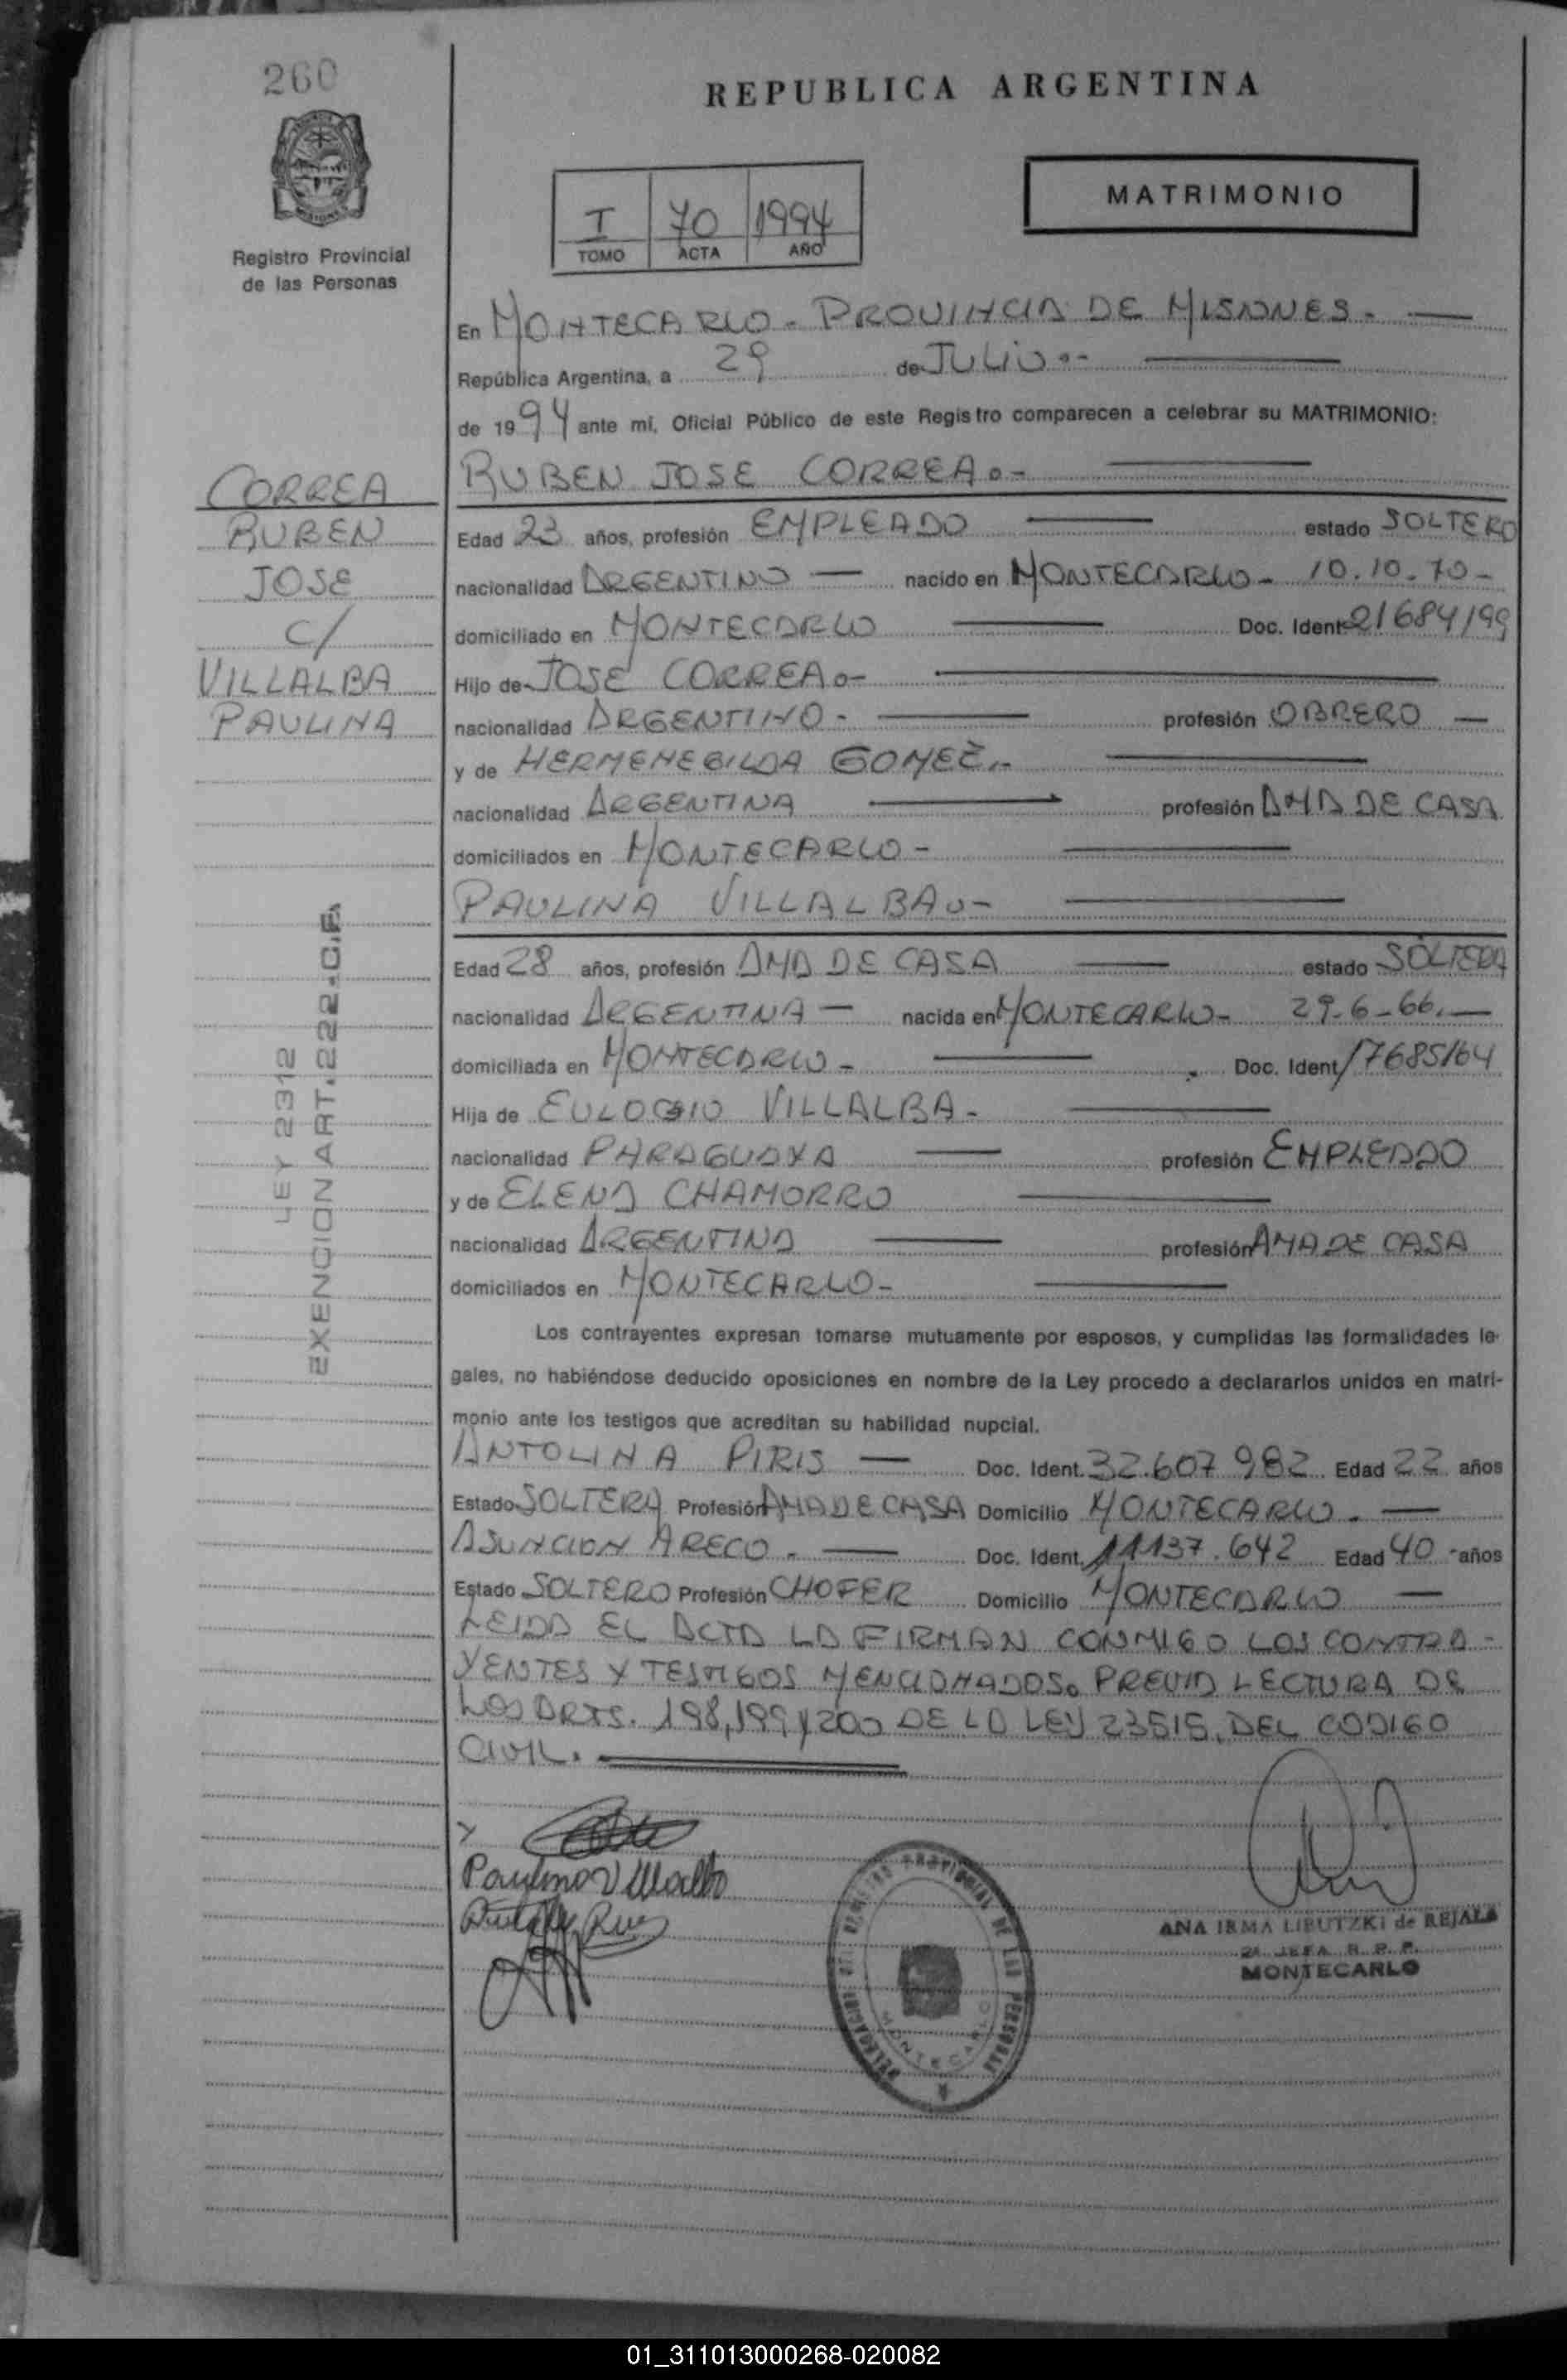 260
REPUBLICA ARGENTINA
MATRIMONIO
I 70 1994
TOMO ACTA AÑO
Registro Provincial
de las Personas
En MONTECARLO - PROVINCIA DE MISIONES -
República Argentina, a 29 de JULIO.-
de 1994 ante mi, Oficial Público de este Registro comparecen a celebrar su MATRIMONIO:
CORREA
RUBEN
JOSE
c/
VILLALBA
PAULINA
RUBEN JOSE CORREA.-
Edad 23 años, profesión EMPLEADO estado SOLTERO
nacionalidad ARGENTINO nacido en MONTECARLO - 10.10.70-
domiciliado en MONTECARLO Doc. Ident. 21684199
Hijo de JOSE CORREA.-
nacionalidad ARGENTINO - profesión OBRERO
y de HERMENEGILDA GOMEZ.-
nacionalidad ARGENTINA profesión AMA DE CASA
domiciliados en MONTECARLO -
PAULINA VILLALBA.-
Edad 28 años, profesión AMA DE CASA estado SOLTERA
nacionalidad ARGENTINA nacida en MONTECARLO - 29-6-66.
domiciliada en MONTECARLO - Doc. Ident. 17685164
Hija de EULOGIO VILLALBA -
nacionalidad PARAGUAYA profesión EMPLEADO
y de ELENA CHAMORRO
nacionalidad ARGENTINA profesión AMA DE CASA
domiciliados en MONTECARLO -
LEY 2312
EXENCION ART. 222-C.F.
Los contrayentes expresan tomarse mutuamente por esposos, y cumplidas las formalidades le-
gales, no habiéndose deducido oposiciones en nombre de la Ley procedo a declararlos unidos en matri-
monio ante los testigos que acreditan su habilidad nupcial.
ANTOLINA PIRIS Doc. Ident. 32.607 982 Edad 22 años
Estado SOLTERA Profesión AMA DE CASA Domicilio MONTECARLO.
ASUNCION ARECO. Doc. Ident. 11137.642 Edad 40 años
Estado SOLTERO Profesión CHOFER Domicilio MONTECARLO
LEIDA EL ACTA LA FIRMAN CONMIGO LOS CONTRA-
YENTES Y TESTIGOS MENCIONADOS. PREVIA LECTURA DE
LOS ARTS. 198, 199 Y 200 DE LA LEY 23515, DEL CODIGO
CIVIL.
Paulina Villalba
ANA IRMA LIPUTZKI de REJALA
2A JEFA R. P. P.
MONTECARLO
DELEGACION DEL REGISTRO PROVINCIAL DE LAS PERSONAS
MONTECARLO
01_311013000268-020082